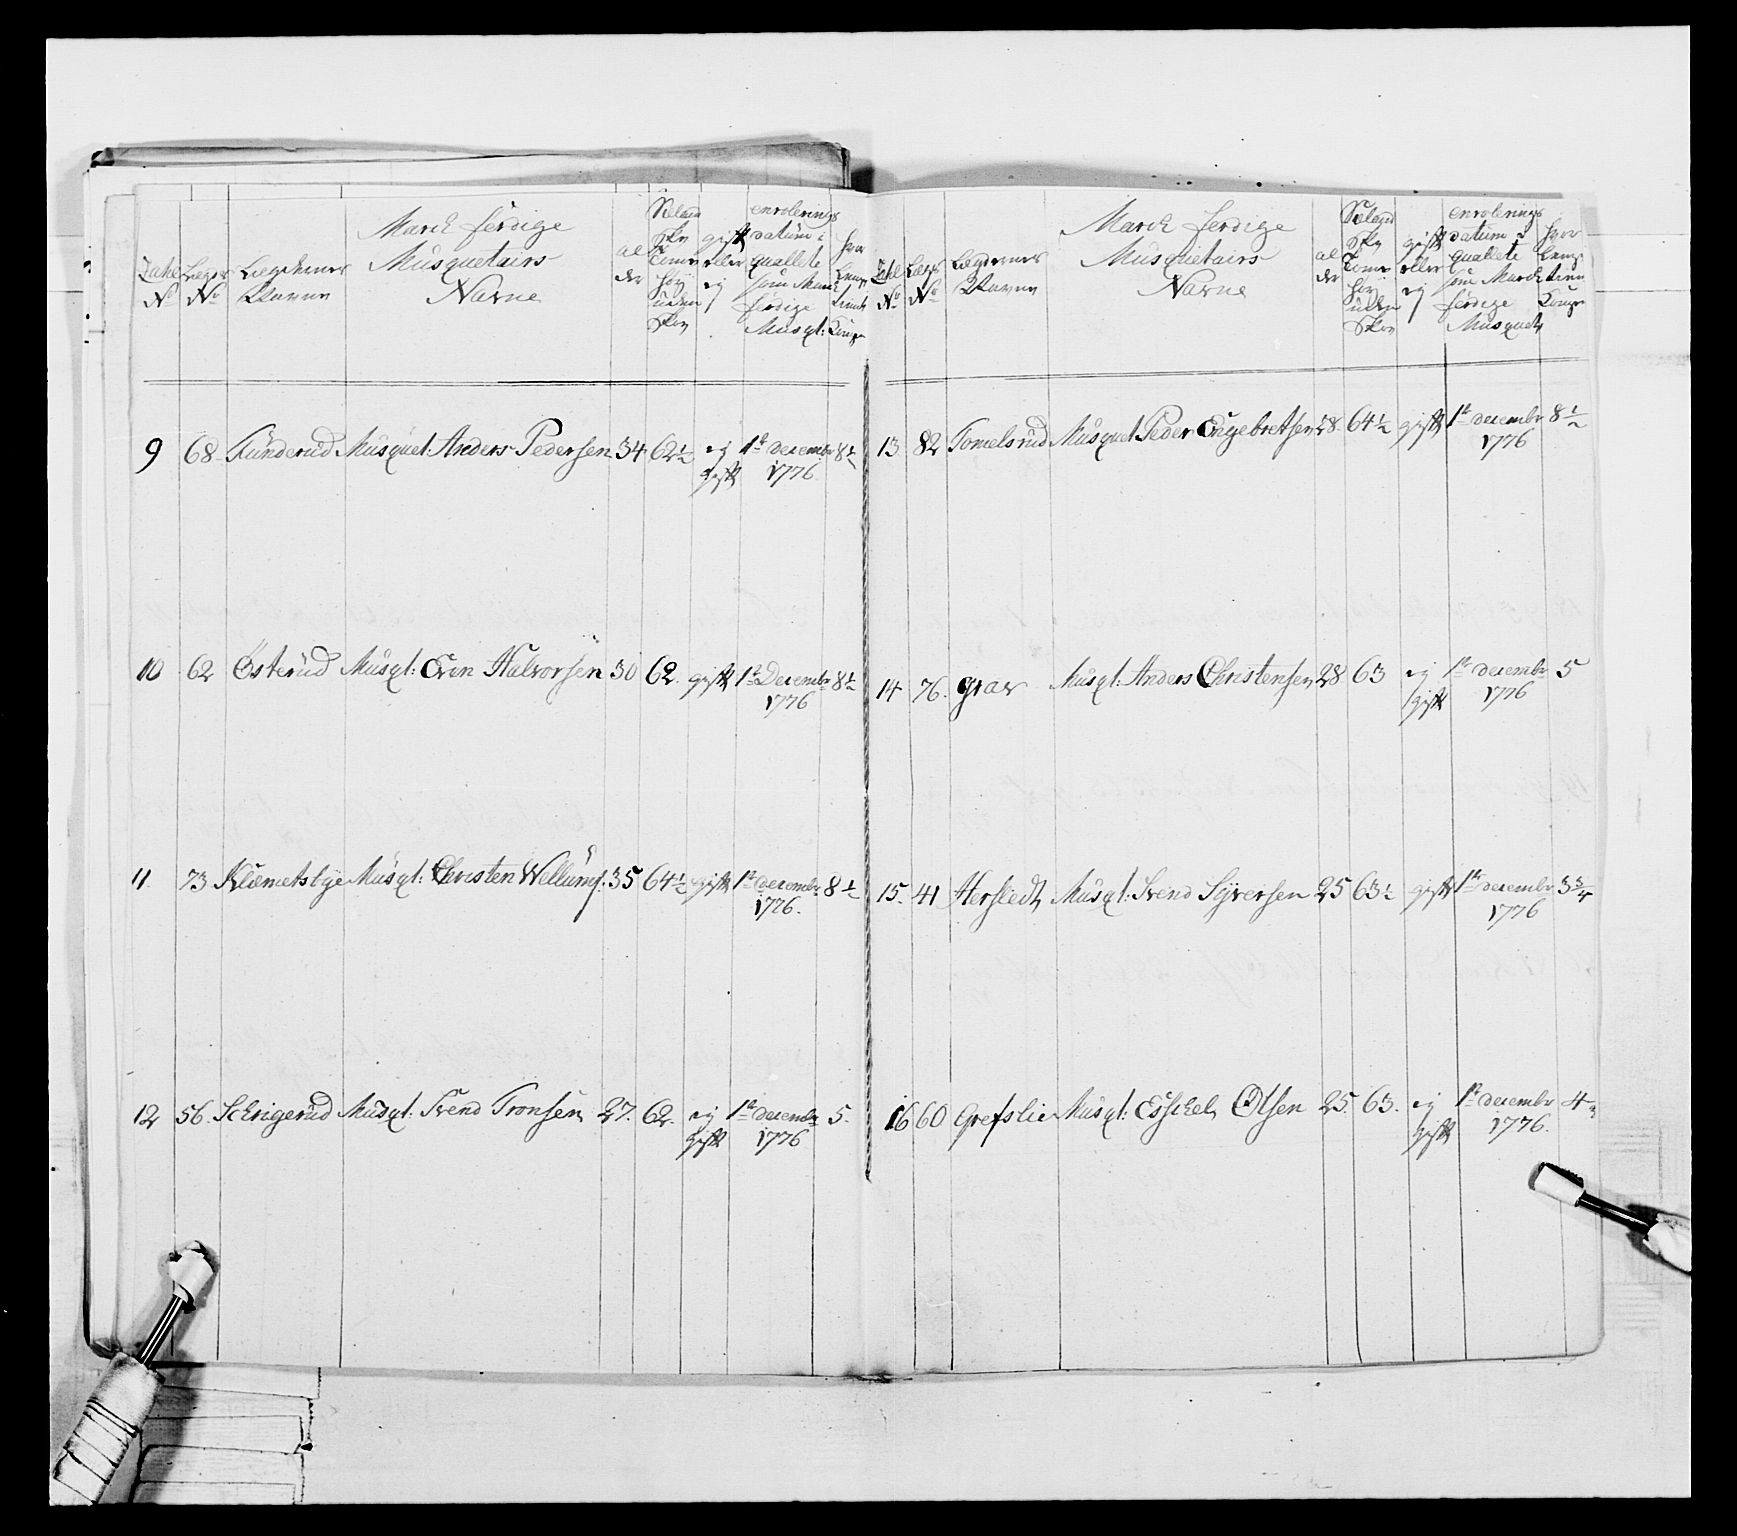 Zahl No
Lægds No
Lægdernes Navne
March færdige Musquetairs Navne
alder
gift eller ej
enrolerings datum i qualtete som March færdige Musqt:
9 68 Funderud Musquet: Anders Pedersen 34 62½ ej gift 1te decembr 1776 8½
10 62 Österud Musqt: Even Halvorsen 30 62. gift 1te Decembr 1776 8½
11 73 Klæmetsbye Musqt: Christen Wellums: 35 64½ gift 1te decembr 1776. 8½
12 56. Schrigerud Musqt: Svend Tronsen 27. 62. ej gift 1te decembr 1776 5.
Zahl No
Lægds No
Lægdernes Navne
March færdige Musquetairs Navne
alder
gift eller ej
enrolerings datum i qualtete som March færdige Musquet
13 82 Tomelsrud Musquet Peder Engebretsen 28 64½ gift 1te decembr 1776 8½
14 76. Grav Musqt: Anders Christensen 28 63 ej gift 1te decembr 1776 5
15. 41 Herstedt Musqt: Svend Syversen 25 63½ gift 1te decembr 1776 3¾
16 60 Grefslie Musqt: Esschel Olsen 25. 63. ej gift 1te decembr 1776. 4